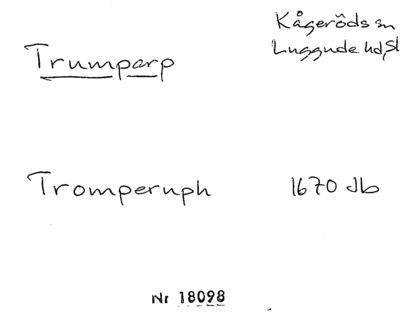 Kågeröds sn
Luggude hd, Sk
Trumparp
Tromperuph 1670 Jb
Nr 18098